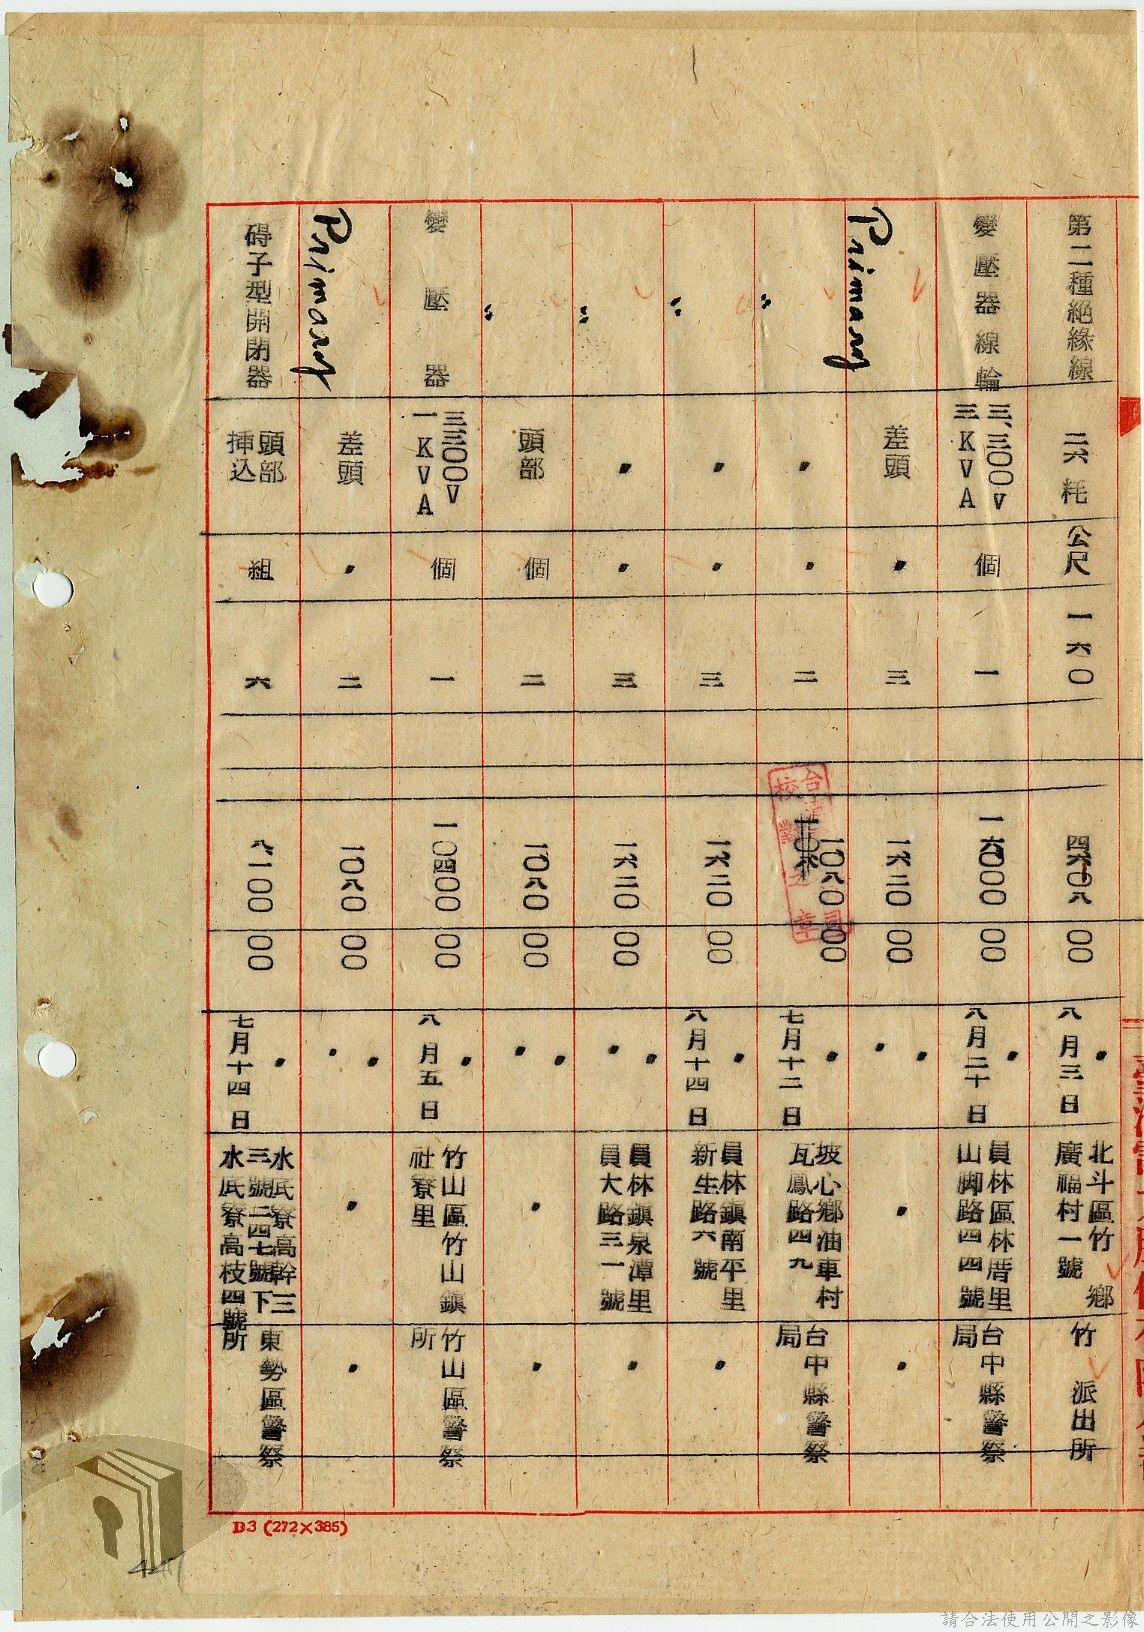 第二種絕緣線 二六粍 公尺 一六〇 四六〇八 〇〇 八月三日 〃 北斗區竹 鄉廣福村一號 竹 派出所
變壓器線輪 三、三〇〇V 三KVA 個 一 一六〇〇〇 〇〇 八月二十日 〃 員林區林厝里山脚路四四號 台中縣警察局
Primary 差頭 〃 三 一六二〇 〇〇 〃 〃 〃 〃
〃 〃 〃 二 一〇八〇 〇〇 七月十二日 〃 坡心鄉油車村瓦鳳路四九 台中縣警察局
〃 〃 〃 三 一六二〇 〇〇 八月十四日 〃 員林鎮南平里新生路六號 〃
〃 〃 〃 三 一六二〇 〇〇 〃 〃 員林鎮泉潭里員大路三一號 〃
〃 頭部 個 二 一〇八〇 〇〇 〃 〃 〃 〃
變壓器 三三〇〇V 一KVA 個 一 一〇四〇〇 〇〇 八月五日 〃 竹山區竹山鎮社寮里 竹山區警察所
Primary 差頭 〃 二 一〇八〇 〇〇 〃 〃 〃 〃
碍子型開閉器 頭部挿込 組 六 八、一〇〇 〇〇 七月十四日 〃 水底寮高幹三三號二四七號下水底寮高枝四號 東勢區警察所
校對之章
D3 (272×385)
請合法使用公開之影像